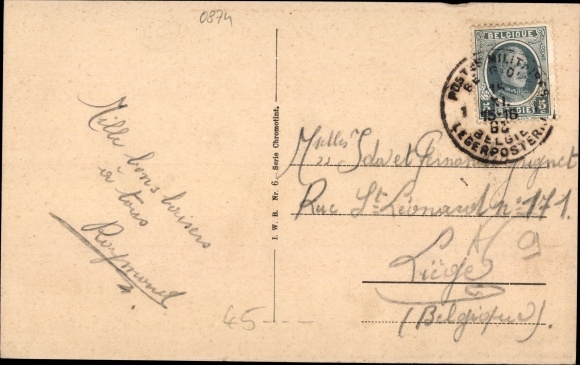 0874
Mille bons baisers
à tous
Raymond
45
I. W. B. Nr. 6 Serie Chromotint.
BELGIQUE
5 5
BELGIË
POSTE MILITAIRE
BELGIQUE
15-16
BELGIE
LEGERPOSTERIJ
Mselles Ida et Fernande Guignet
Rue St Léonard n° 171.
Liège
(Belgique)